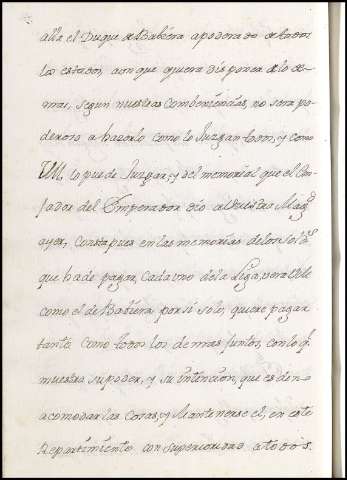 alla el Duque de Babiera apoderado de todos
los estados, aunque quiera disponer de lo de-
mas, segun nuestras combeniencias, no sera po-
deroso a hazerlo como lo Juzgan todos, y como
VM, lo puede Juzgar, y del memorial que el Con-
fesador del Emperador dio a Vuestra Magd
ayer, consta pues en las memorias de los sold.os
que ha de pagar, cada uno de la Liga, vera VM
como el de Babiera por si solo, quiere pagar
tanta como todos los demas juntos, con lo q.
muestra su poder, y su intencion, que es de no
acomodar las cosas, y Mantenerse el, en este
Repartimiento con superioridad a todos.